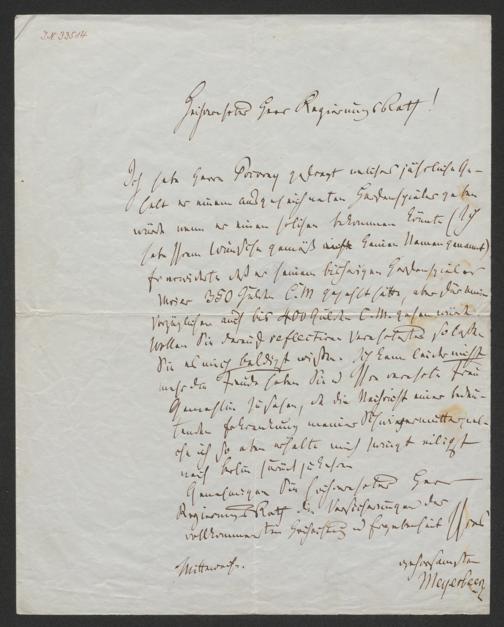 I.N. 33514
Hochverehrter Herr Regierungs Rath!
Ich habe Herrn Pokorny gefragt welches jährliche Ge-
halt er einem ausgezeichneten Harfenspieler geben
würde wenn er einen solchen bekommen könnte (Ich
habe Ihrem Wunsche gemäß nicht keinen Namen genannt)
Er erwiderte daß er seinem bisherigen Harfenspieler
Moser 350 Gulden C.M. gezahlt hätte, aber einem
Vorzüglichen auch bis 400 Gulden C.M. geben würde.
Wollen Sie darauf reflectiren Verehrtester so laßen
Sie es mich baldigst wißen. Ich kann leider nicht
mehr die Freude haben Sie u Ihre verehrte Frau
Gemahlin zu sehen, da die Nachricht einer bedeu-
tenden Erkrankung meiner Schwiegermutter wel-
che ich so eben erhalte mich zwingt eiligst
nach Berlin zurückzukehren
Genehmigen Sie hochverehrter Herr
Regierungs Rath die Versicherungen der
vollkommensten Hochachtung u Ergebenheit Ihres
gehorsamsten
Mittewoch.
Meyerbeer